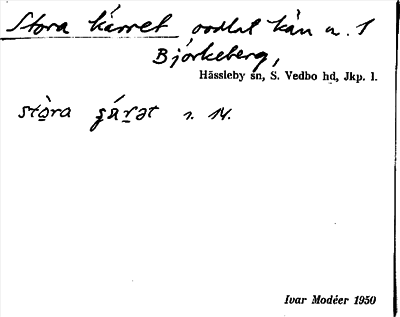 Stora kärret oodlat kän n. 1
Björkeberg,
Hässleby sn, S. Vedbo hd, Jkp. l.
stòra
Ivar Modéer 1950